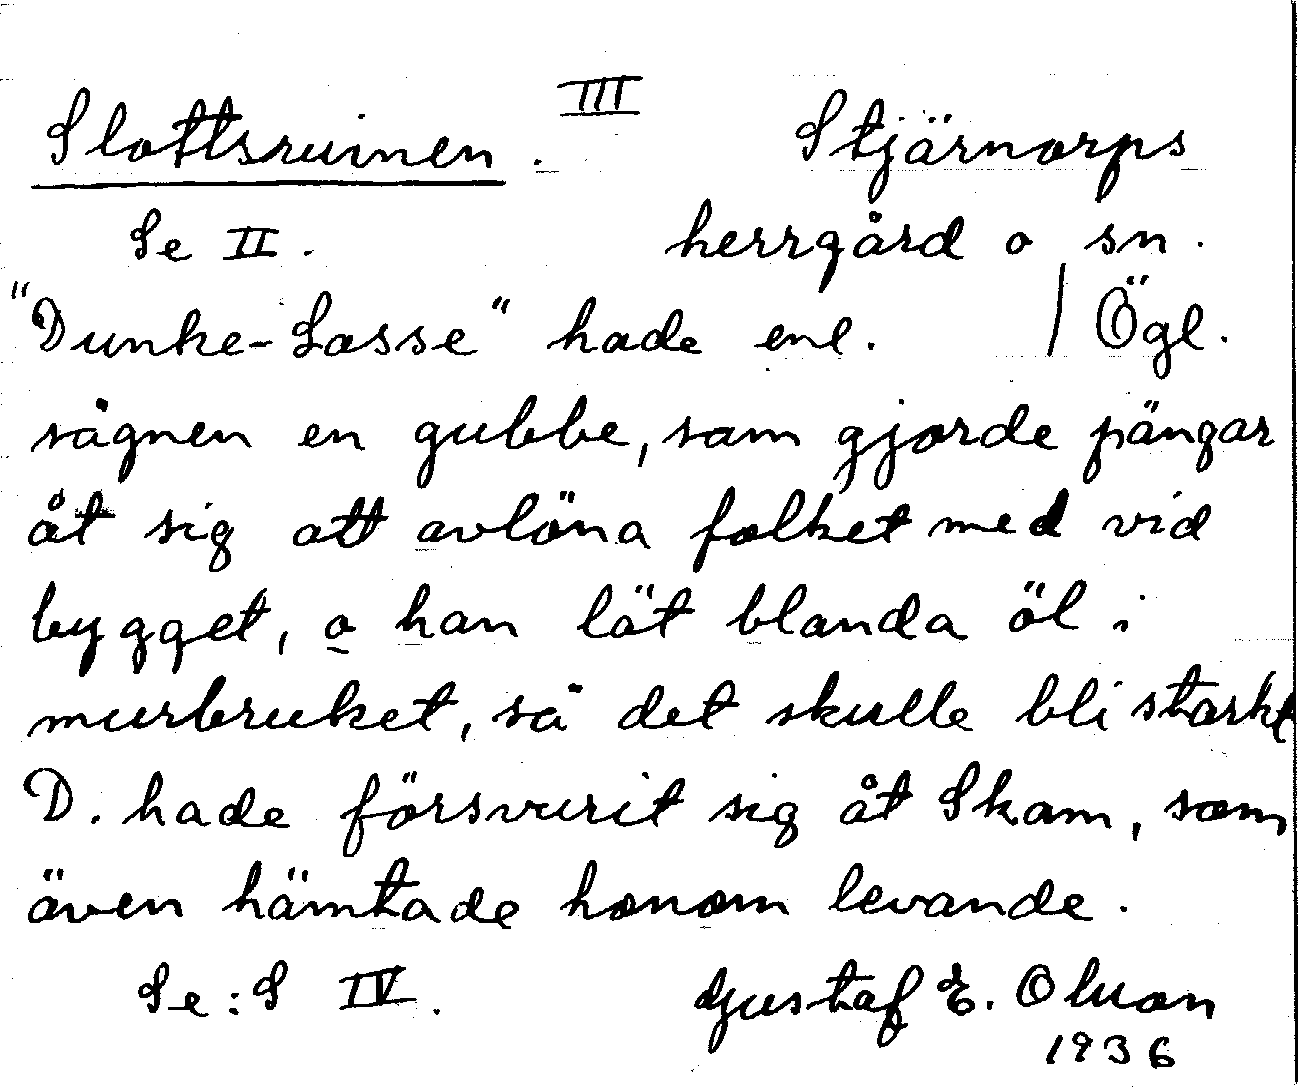 III
Slottsruinen. Stjärnorps
Se II. herrgård o sn.
"Dunke-Lasse" hade enl. / Ögl.
sägnen en gubbe, som gjorde pängar
åt sig att avlöna folket med vid
bygget, o han lät blanda öl i
murbruket, så det skulle bli starkt
D. hade försvurit sig åt Skam, som
även hämtade honom levande.
Se: S IV. Gustaf E. Olsson
1936